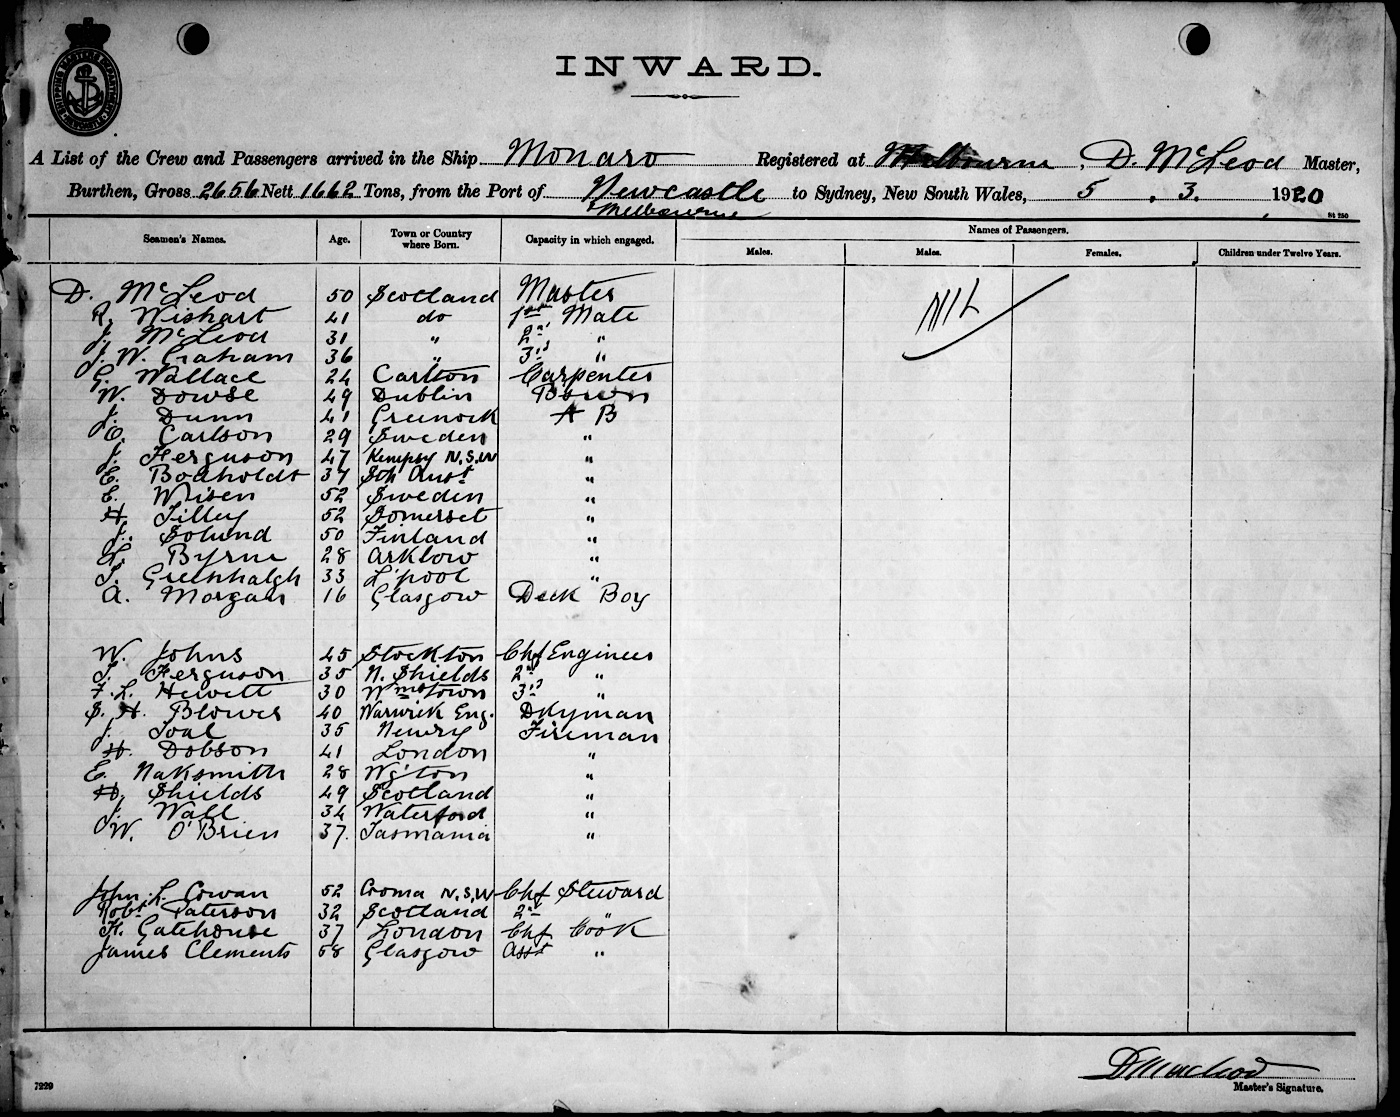 SHIPPING MASTERS DEPARTMENT NEWCASTLE
INWARD.
A List of the Crew and Passengers arrived in the Ship Monaro Registered at Melbourne, D. McLeod Master,
Burthen, Gross 2656 Nett 1662 Tons, from the Port of Newcastle to Sydney, New South Wales, 5 . 3. 1920
+ Melbourne
St 250
Seamen's Names. Age. Town or Country where Born. Capacity in which engaged. Names of Passengers.
Males. Males. Females. Children under Twelve Years.
D. McLeod 50 Scotland Master
Nil
R. Wishart 41 do 1st Mate
J. McLeod 31 " 2nd "
J. W. Graham 36 " 3rd "
G. Wallace 24 Carlton Carpenter
W. Dowse 49 Dublin Bosun
J. Dunn 41 Greenock A B
O. Carlson 29 Sweden "
J. Ferguson 47 Kempsy N.S.W "
E. Bodholdt 37 Sth Aust "
E. Wisen 52 Sweden "
H. Tilley 52 Somerset "
J. Solund 50 Finland "
L. Byrne 28 Arklow "
T. Greenhalgh 33 L'pool "
A. Morgan 16 Glasgow Deck Boy
W. Johns 45 Stockton Chf Engineer
T. Ferguson 35 N. Shields 2nd "
F. L. Hewett 30 Wmstown 3rd "
S. H. Blower 40 Warwick Eng. Dkyman
J. Toal 35 Newry Fireman
H. Dobson 41 London "
E. Naksmith 28 Wg'ton "
H. Shields 49 Scotland "
J. Wall 34 Waterford "
W. O'Brien 37. Tasmania "
John L. Cowan 52 Croma N.S.W Chf Steward
Robt Paterson 32 Scotland 2nd "
H. Gatehouse 37 London Chf Cook
James Clements 58 Glasgow Asst "
D Macleod
Master's Signature.
7229